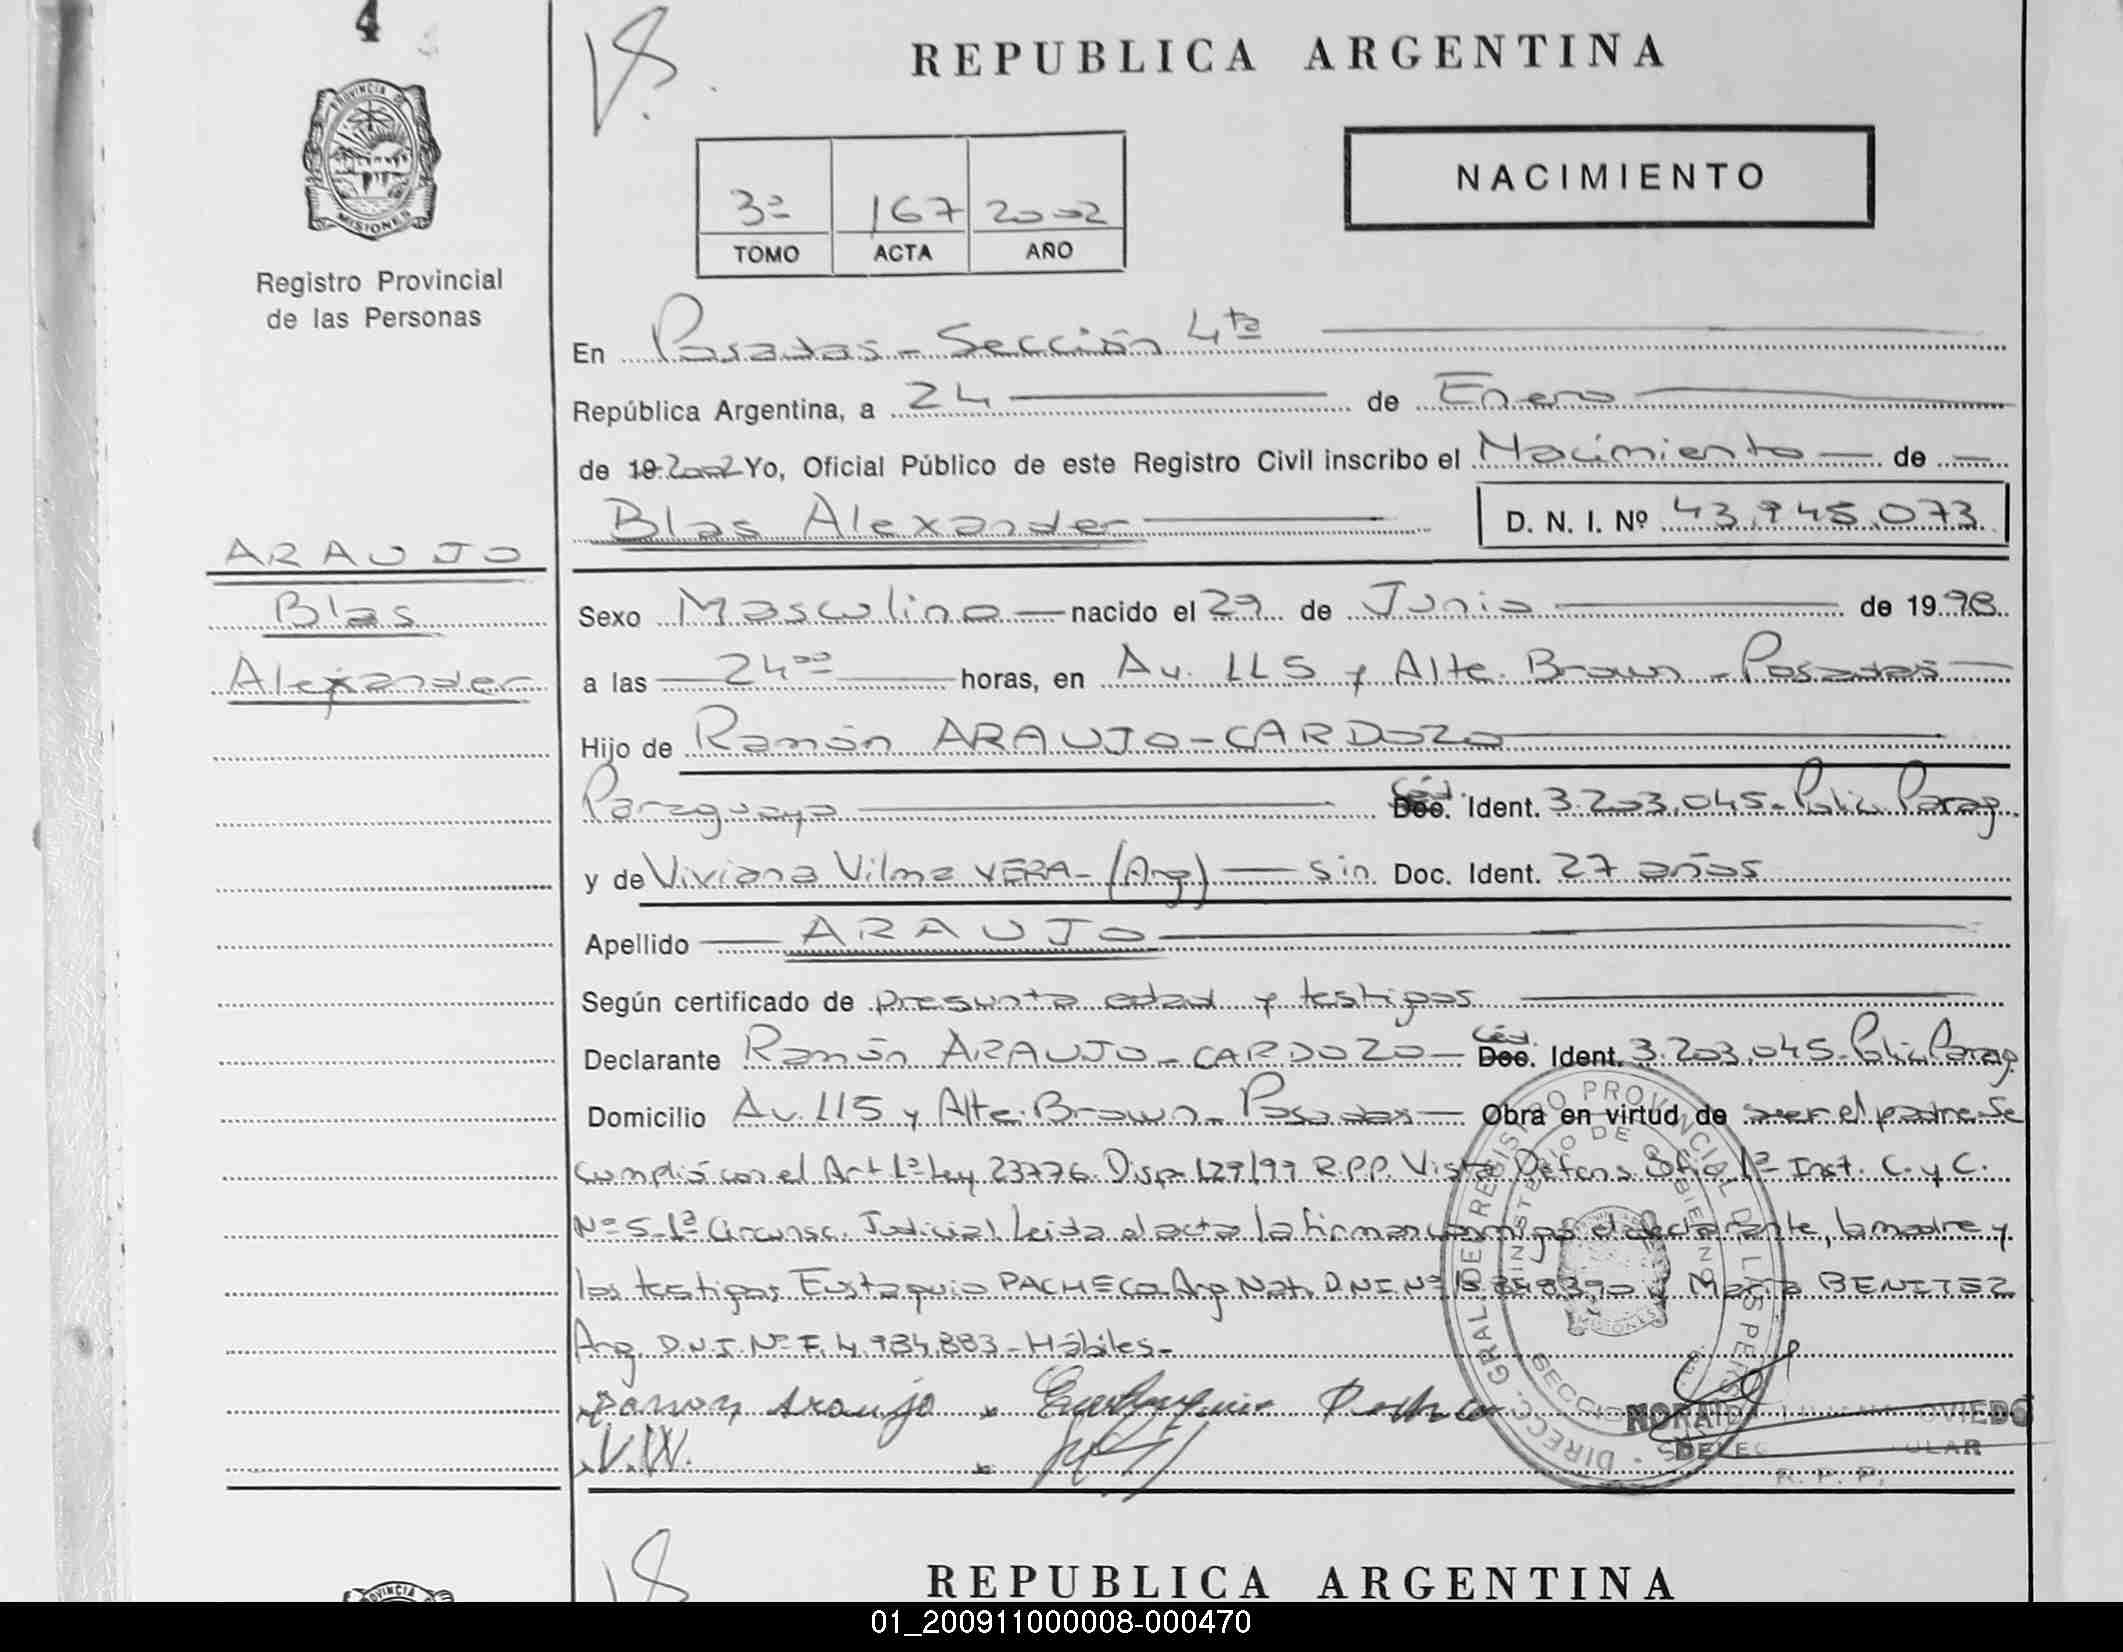 4
V.S.
REPUBLICA ARGENTINA
PROVINCIA DE
MISIONES
Registro Provincial
de las Personas
3º 167 2002
TOMO ACTA AÑO
NACIMIENTO
En Posadas - Sección 4ta
República Argentina, a 24 de Enero
de 19 2002 Yo, Oficial Público de este Registro Civil inscribo el Nacimiento de
Blas Alexander D. N. I. Nº 43.945.073
ARAUJO
Blas
Alexander
Sexo Masculino nacido el 29 de Junio de 1998
a las 24ºº horas, en Av. 115 y Alte. Brown - Posadas
Hijo de Ramón ARAUJO-CARDOZO
Paraguaya Céd. Doc. Ident. 3.203.045 - Polic. Parag.
y de Viviana Vilma VERA - (Arg) sin Doc. Ident. 27 años
Apellido ARAUJO
Según certificado de presunta edad y testigos
Declarante Ramón ARAUJO - CARDOZO Céd. Doc. Ident. 3.203.045 - Polic. Parag.
Domicilio Av. 115 y Alte. Brown - Posadas Obra en virtud de ser el padre. Se
cumplió con el Art. 1º Ley 23776. Disp. 129/99 R.P.P. Vista Defens. Ofic. 1ª Inst. C. y C.
Nº 5 - 1ª Circunsc. Judicial. Leída el acta la firman conmigo el declarante, la madre y
los testigos Eustaquio PACHECO Arg. Nat. D.N.I. Nº y María BENITEZ
Arg. D.N.I. Nº F. 4.984.883 - Hábiles -
Ramon Araujo Eustaquio Pacheco
V.W.
DIRECC. GRAL. DE REGISTRO PROVINCIAL DE LAS PERSONAS
MINISTERIO DE GOBIERNO
SECCION
MISIONES
OVIEDO
R. P. P.
REPUBLICA ARGENTINA
PROVINCIA
01_200911000008-000470